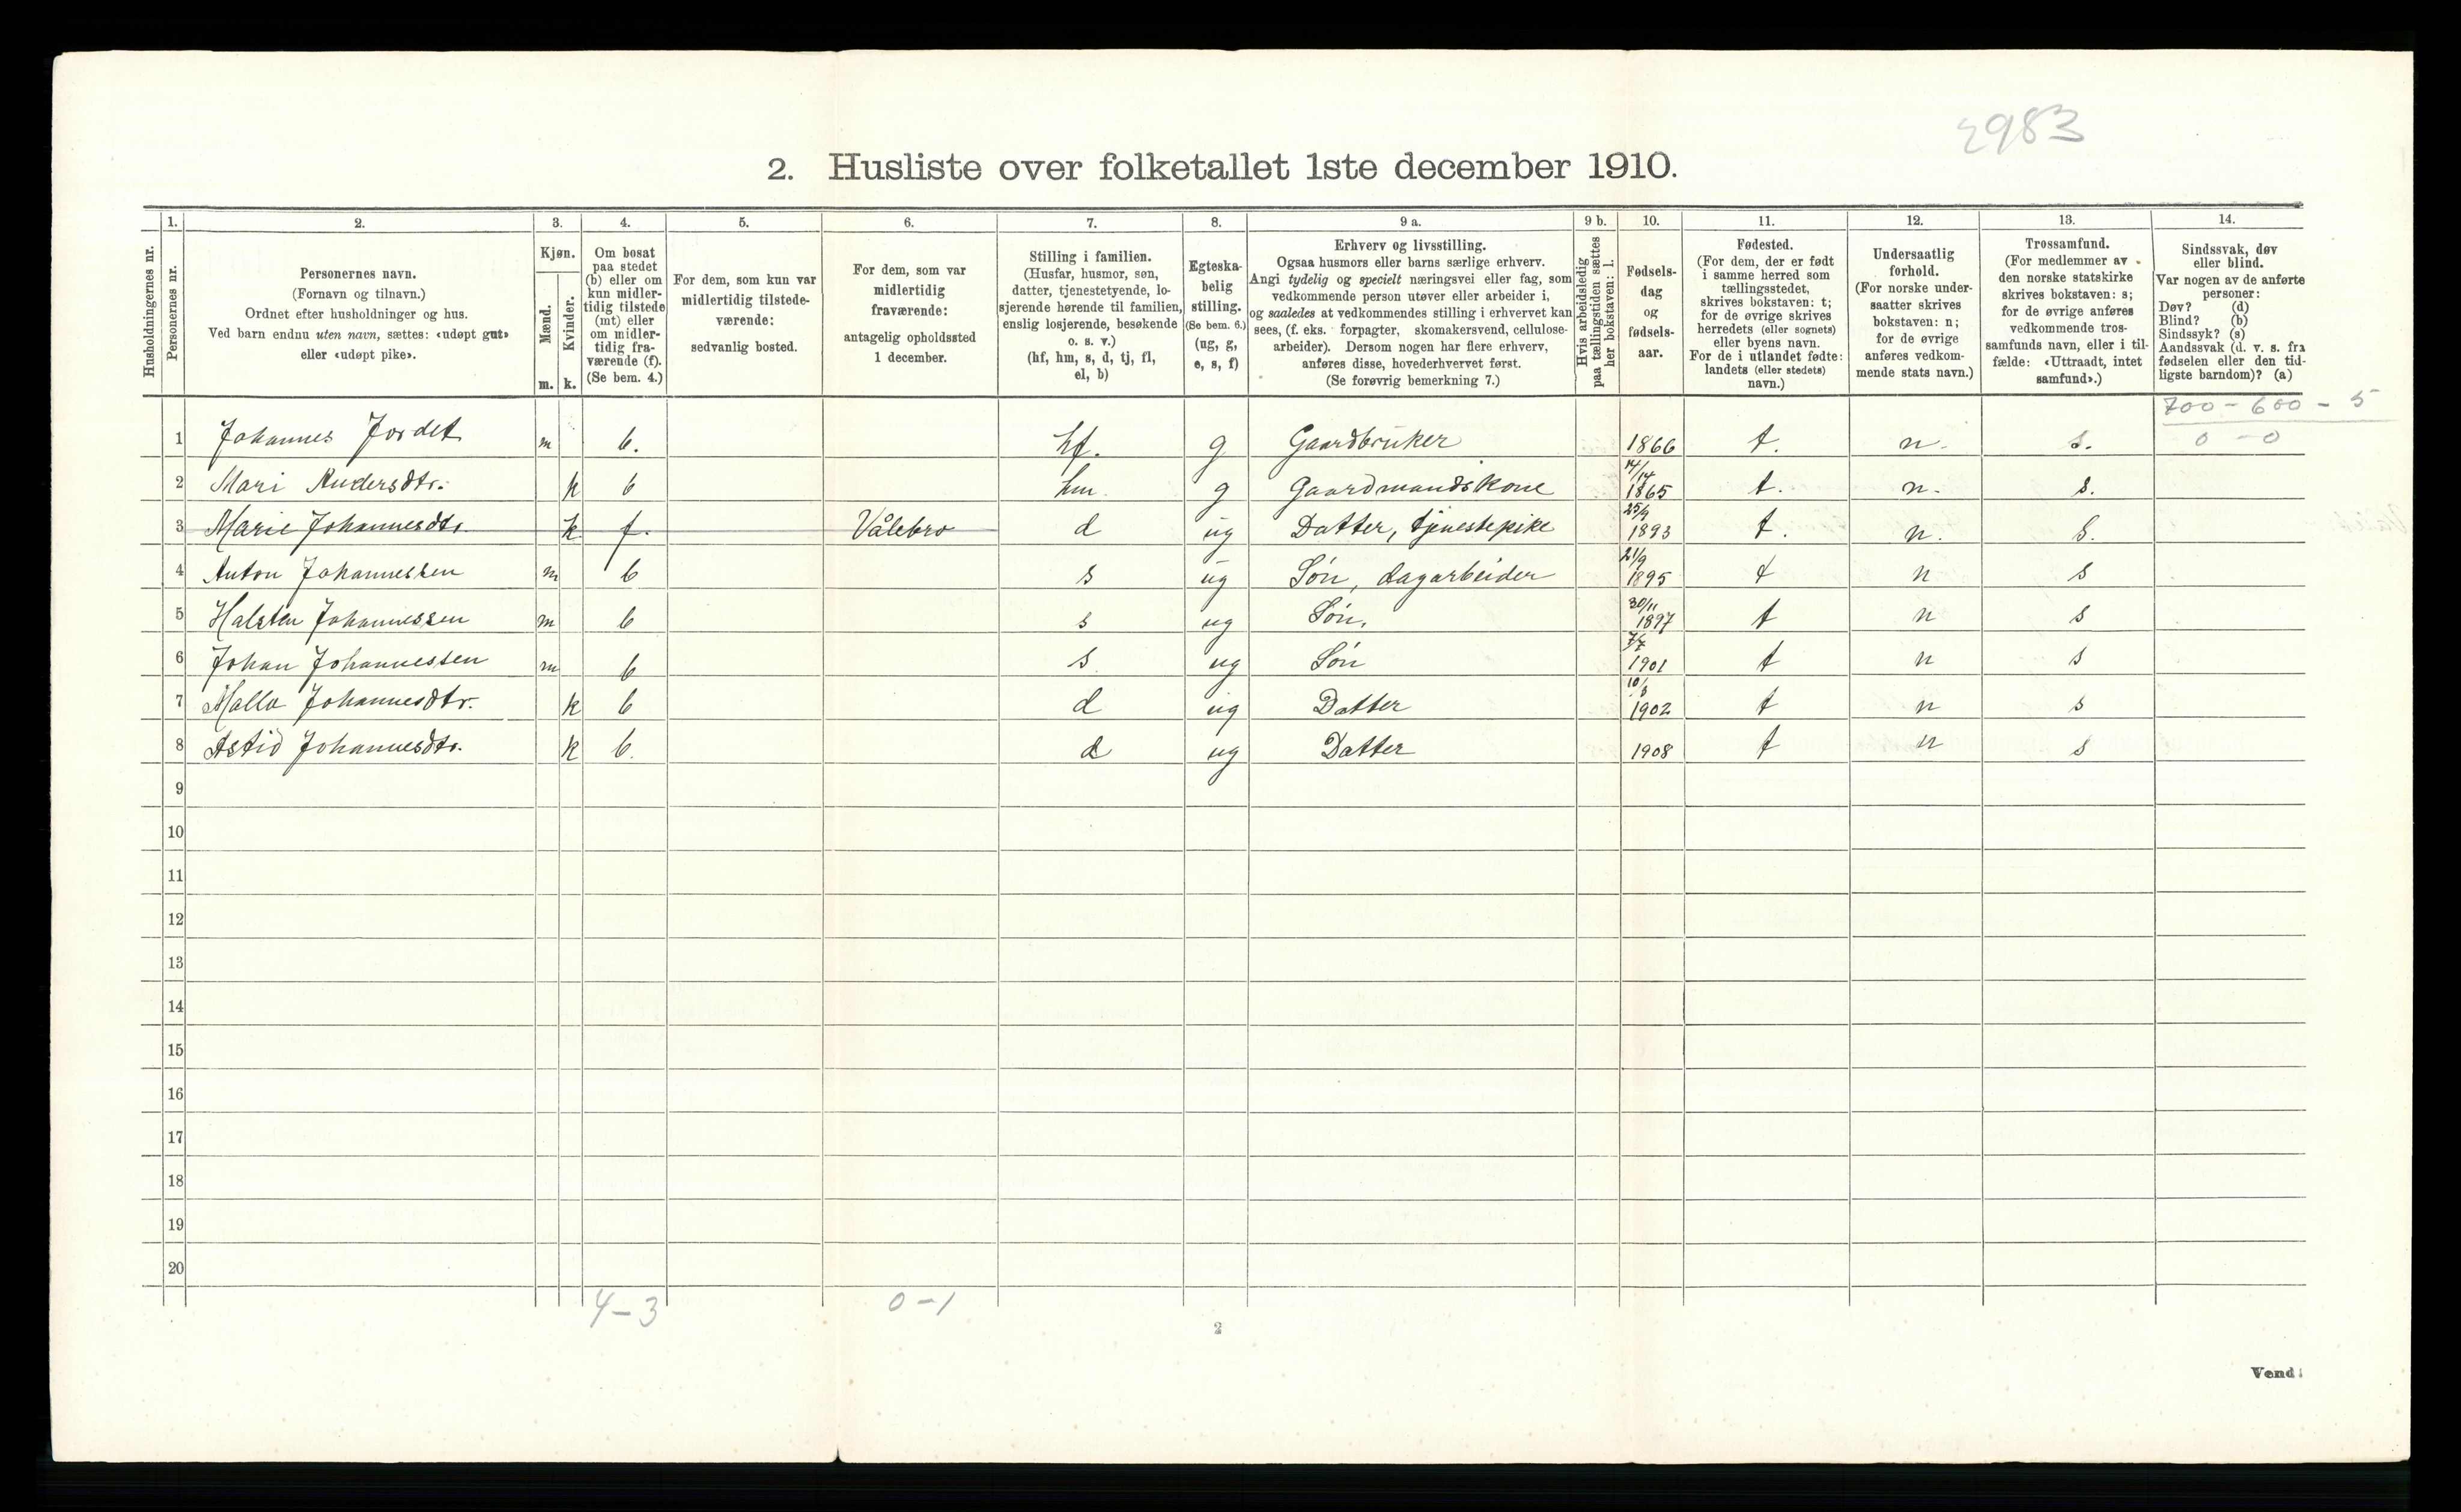 2983
2. Husliste over folketallet 1ste december 1910.
Husholdningernes nr.
1. Personernes nr.
2. Personernes navn.
(Fornavn og tilnavn.)
Ordnet efter husholdninger og hus.
Ved barn endnu uten navn, sættes: «udøpt gut»
eller «udøpt pike».
3. Kjøn.
Mænd. m.
Kvinder. k.
4. Om bosat
paa stedet
(b) eller om
kun midler-
tidig tilstede
(mt) eller
om midler-
tidig fra-
værende (f).
(Se bem. 4.)
5. For dem, som kun var
midlertidig tilstede-
værende:
sedvanlig bosted.
6. For dem, som var
midlertidig
fraværende:
antagelig opholdssted
1 december.
7. Stilling i familien.
(Husfar, husmor, søn,
datter, tjenestetyende, lo-
sjerende hørende til familien,
enslig losjerende, besøkende
o. s. v.)
(hf, hm, s, d, tj, fl,
el, b)
8. Egteska-
belig
stilling.
(Se bem. 6.)
(ug, g,
e, s, f)
9 a. Erhverv og livsstilling.
Ogsaa husmors eller barns særlige erhverv.
Angi tydelig og specielt næringsvei eller fag, som
vedkommende person utøver eller arbeider i,
og saaledes at vedkommendes stilling i erhvervet kan
sees, (f. eks. forpagter, skomakersvend, cellulose-
arbeider). Dersom nogen har flere erhverv,
anføres disse, hovederhvervet først.
(Se forøvrig bemerkning 7.)
9 b. Hvis arbeidsledig
paa tællingstiden sættes
her bokstaven: l.
10. Fødsels-
dag
og
fødsels-
aar.
11. Fødested.
(For dem, der er født
i samme herred som
tællingsstedet,
skrives bokstaven: t;
for de øvrige skrives
herredets (eller sognets)
eller byens navn.
For de i utlandet fødte:
landets (eller stedets)
navn.)
12. Undersaatlig
forhold.
(For norske under-
saatter skrives
bokstaven: n;
for de øvrige
anføres vedkom-
mende stats navn.)
13. Trossamfund.
(For medlemmer av
den norske statskirke
skrives bokstaven: s;
for de øvrige anføres
vedkommende tros-
samfunds navn, eller i til-
fælde: «Uttraadt, intet
samfund».)
14. Sindssvak, døv
eller blind.
Var nogen av de anførte
personer:
Døv? (d)
Blind? (b)
Sindssyk? (s)
Aandssvak (d. v. s. fra
fødselen eller den tid-
ligste barndom)? (a)
700 - 600 - 5
0 - 0
1 Johannes Jordet m b. hf. g Gaardbruker 1866 t. n. s.
2 Mari Andersdtr. k b hm. g Gaardmandskone 1865 t. n. s.
3 Marie Johannesdtr. k f. Vålebro d ug Datter, tjenestepike 25/9 1893 t. n. s.
4 Anton Johannessen m b s ug Søn, dagarbeider 21/9 1895 t n s
5 Halsten Johannessen m b s ug Søn. 30/11 1897 t n s
6 Johan Johannessen m b s. ug Søn 1901 t n s
7 Malla Johannesdtr. k b d ug Datter 10/3 1902 t n s
8 Astid Johannesdtr. k b. d ug Datter 1908 t n s
9
10
11
12
13
14
15
16
17
18
19
20
4-3 0-1
2
Vend!